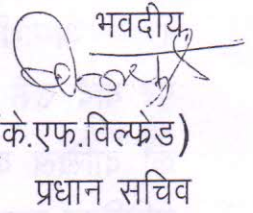 भवदीय,
के.एफ.विल्फ्रेड)
प्रधान सचिव